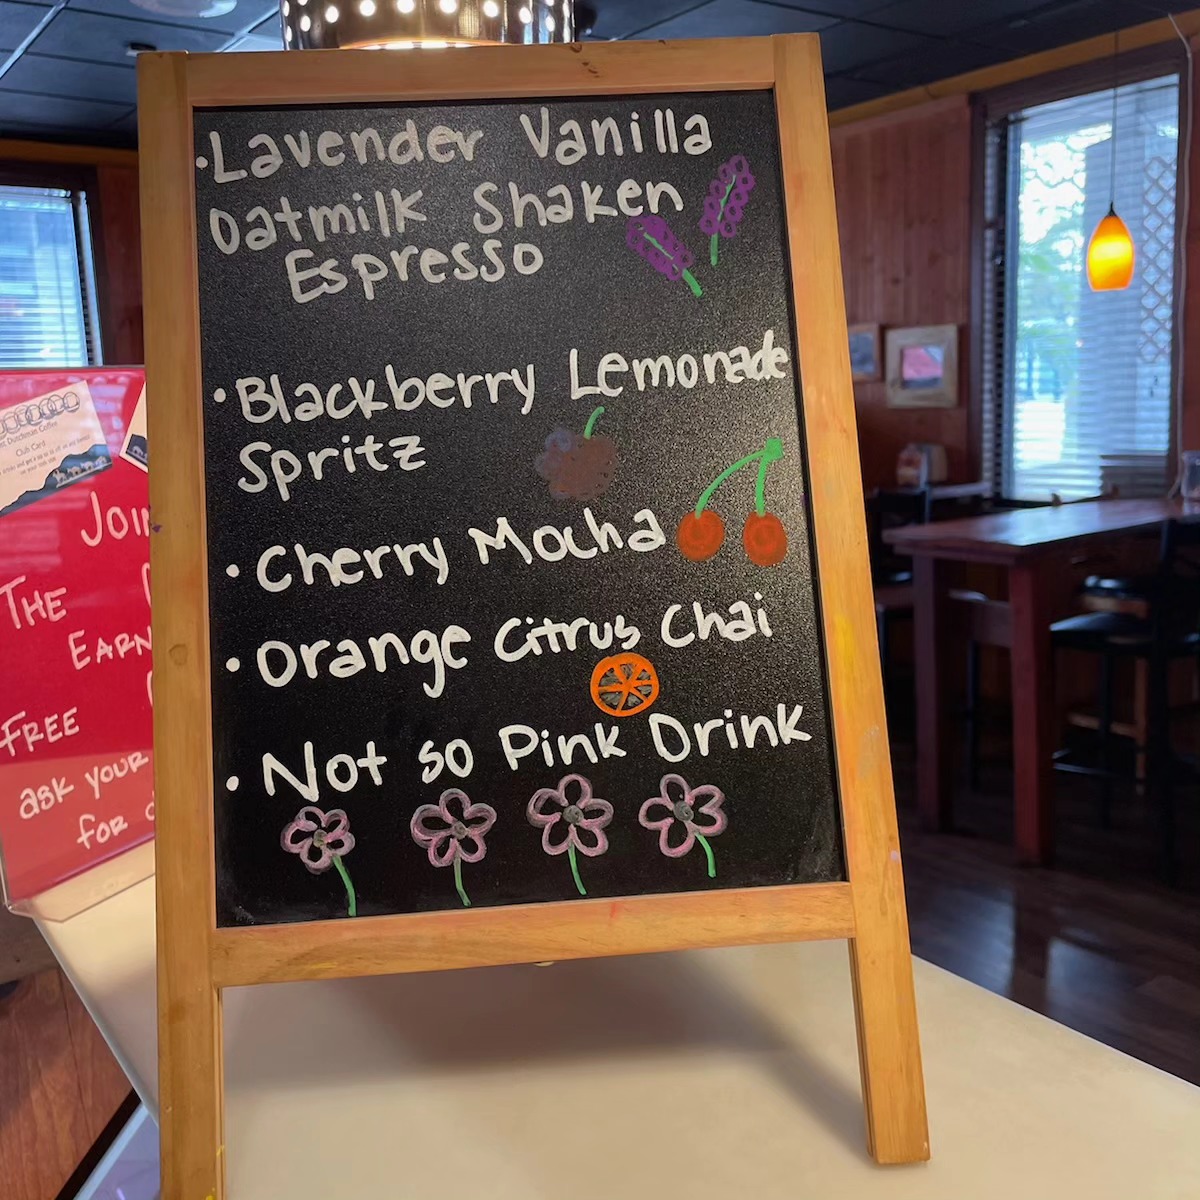 ·Lavender Vanilla
Oatmilk Shaken
Espresso
·Blackberry Lemonade
Spritz
·Cherry Mocha
·Orange Citrus Chai
·Not so Pink Drink
Dutchman Coffee
Club Card
THE
EARN
FREE
ask your
for